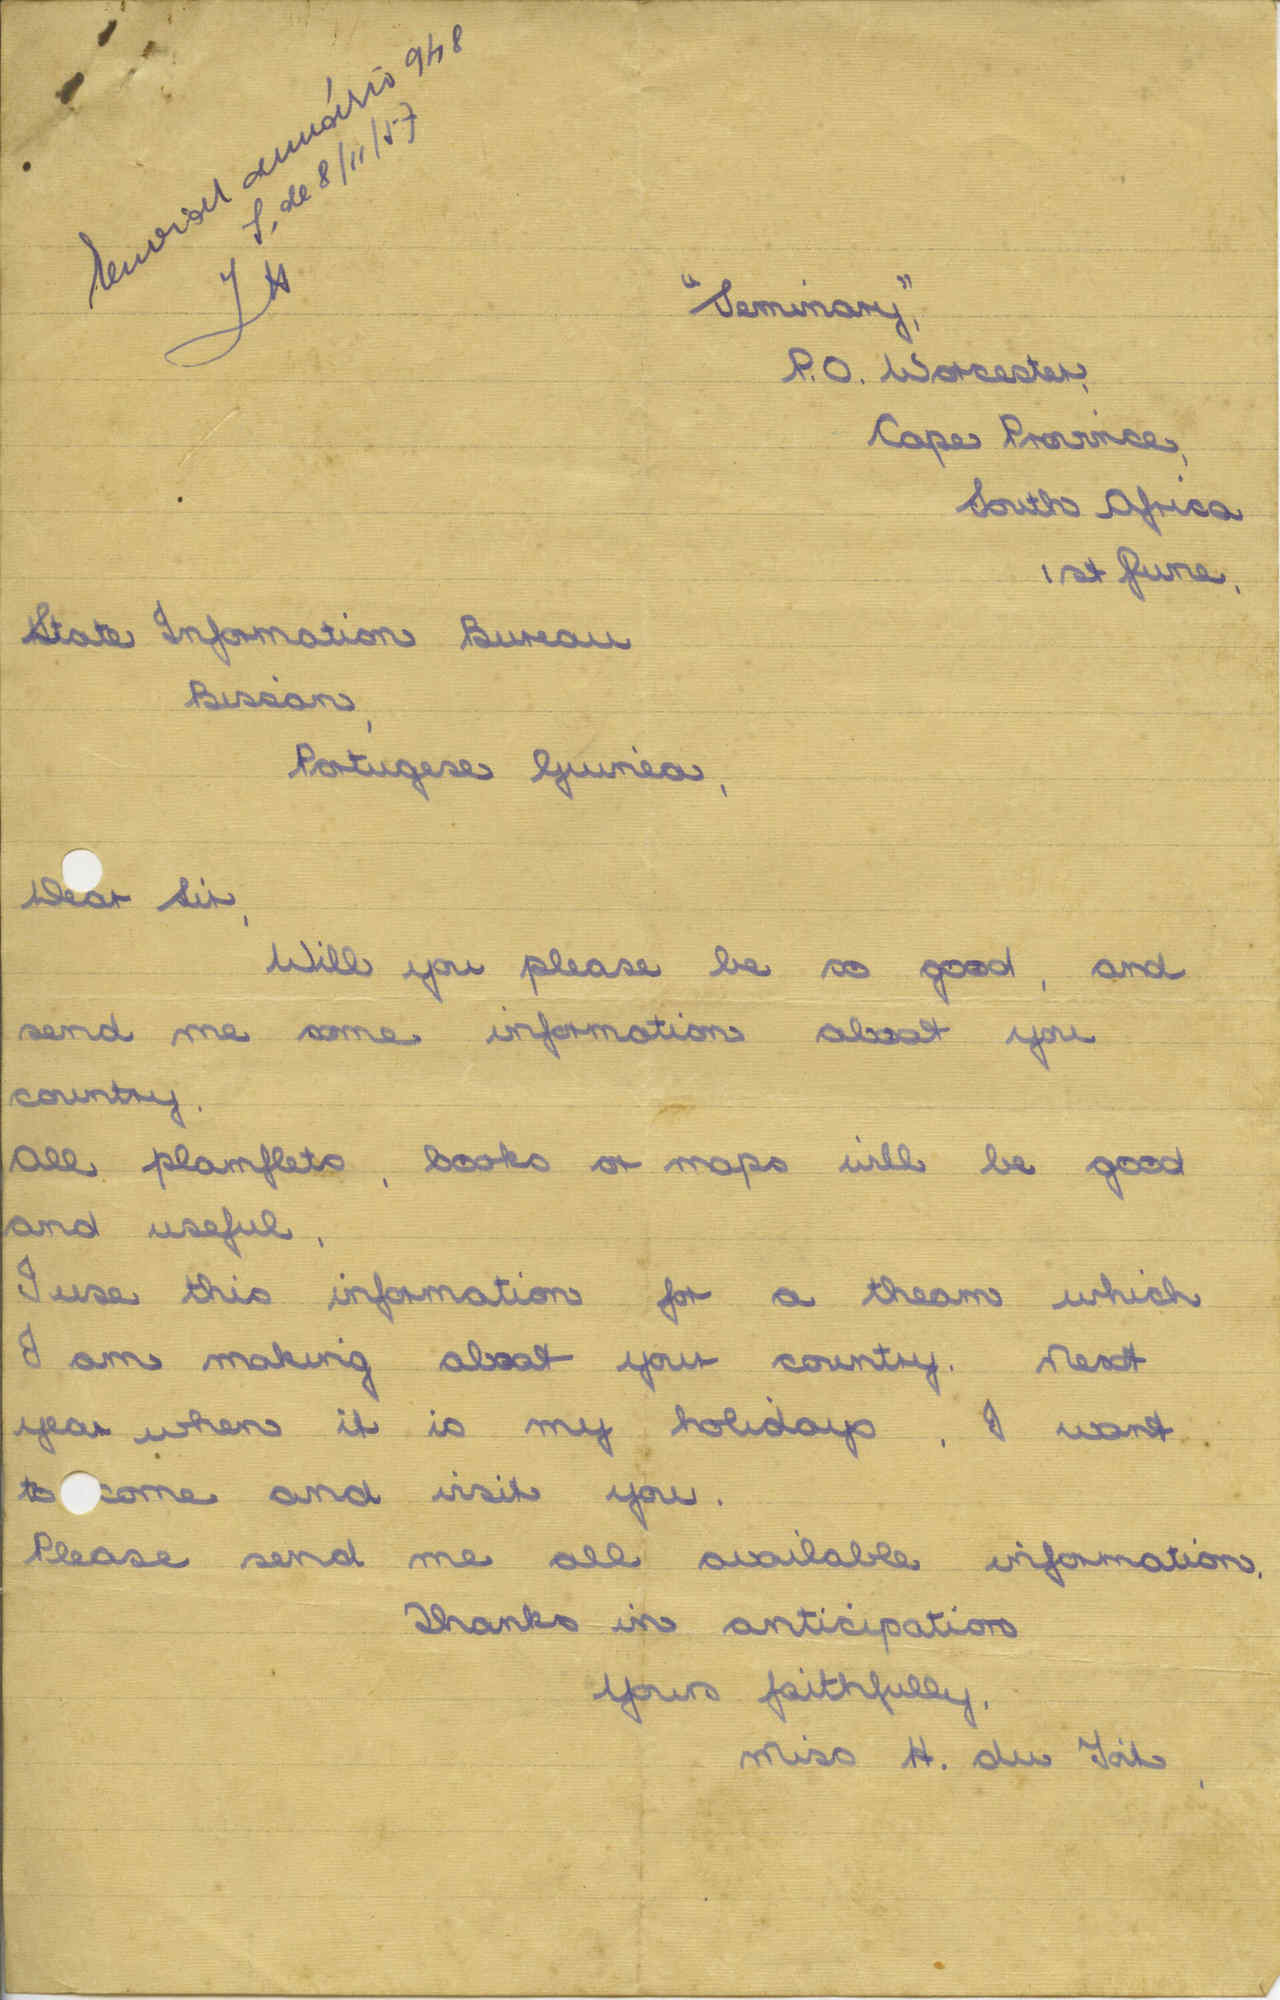 anuário 948
de 8/11/57
"Seminary",
P.O. Worcester,
Cape Province,
South Africa
1st June.
State Information Bureau
Bissau,
Portugese Guinea,
Dear Sir,
Will you please be so good, and
send me some information about you
country.
All plamflets, books or maps will be good
and useful.
I use this information for a theam which
I am making about your country. Next
year when it is my holidays, I want
to come and visit you.
Please send me all available information.
Thanks in anticipation
Yours faithfully,
Miss H. du Toit,